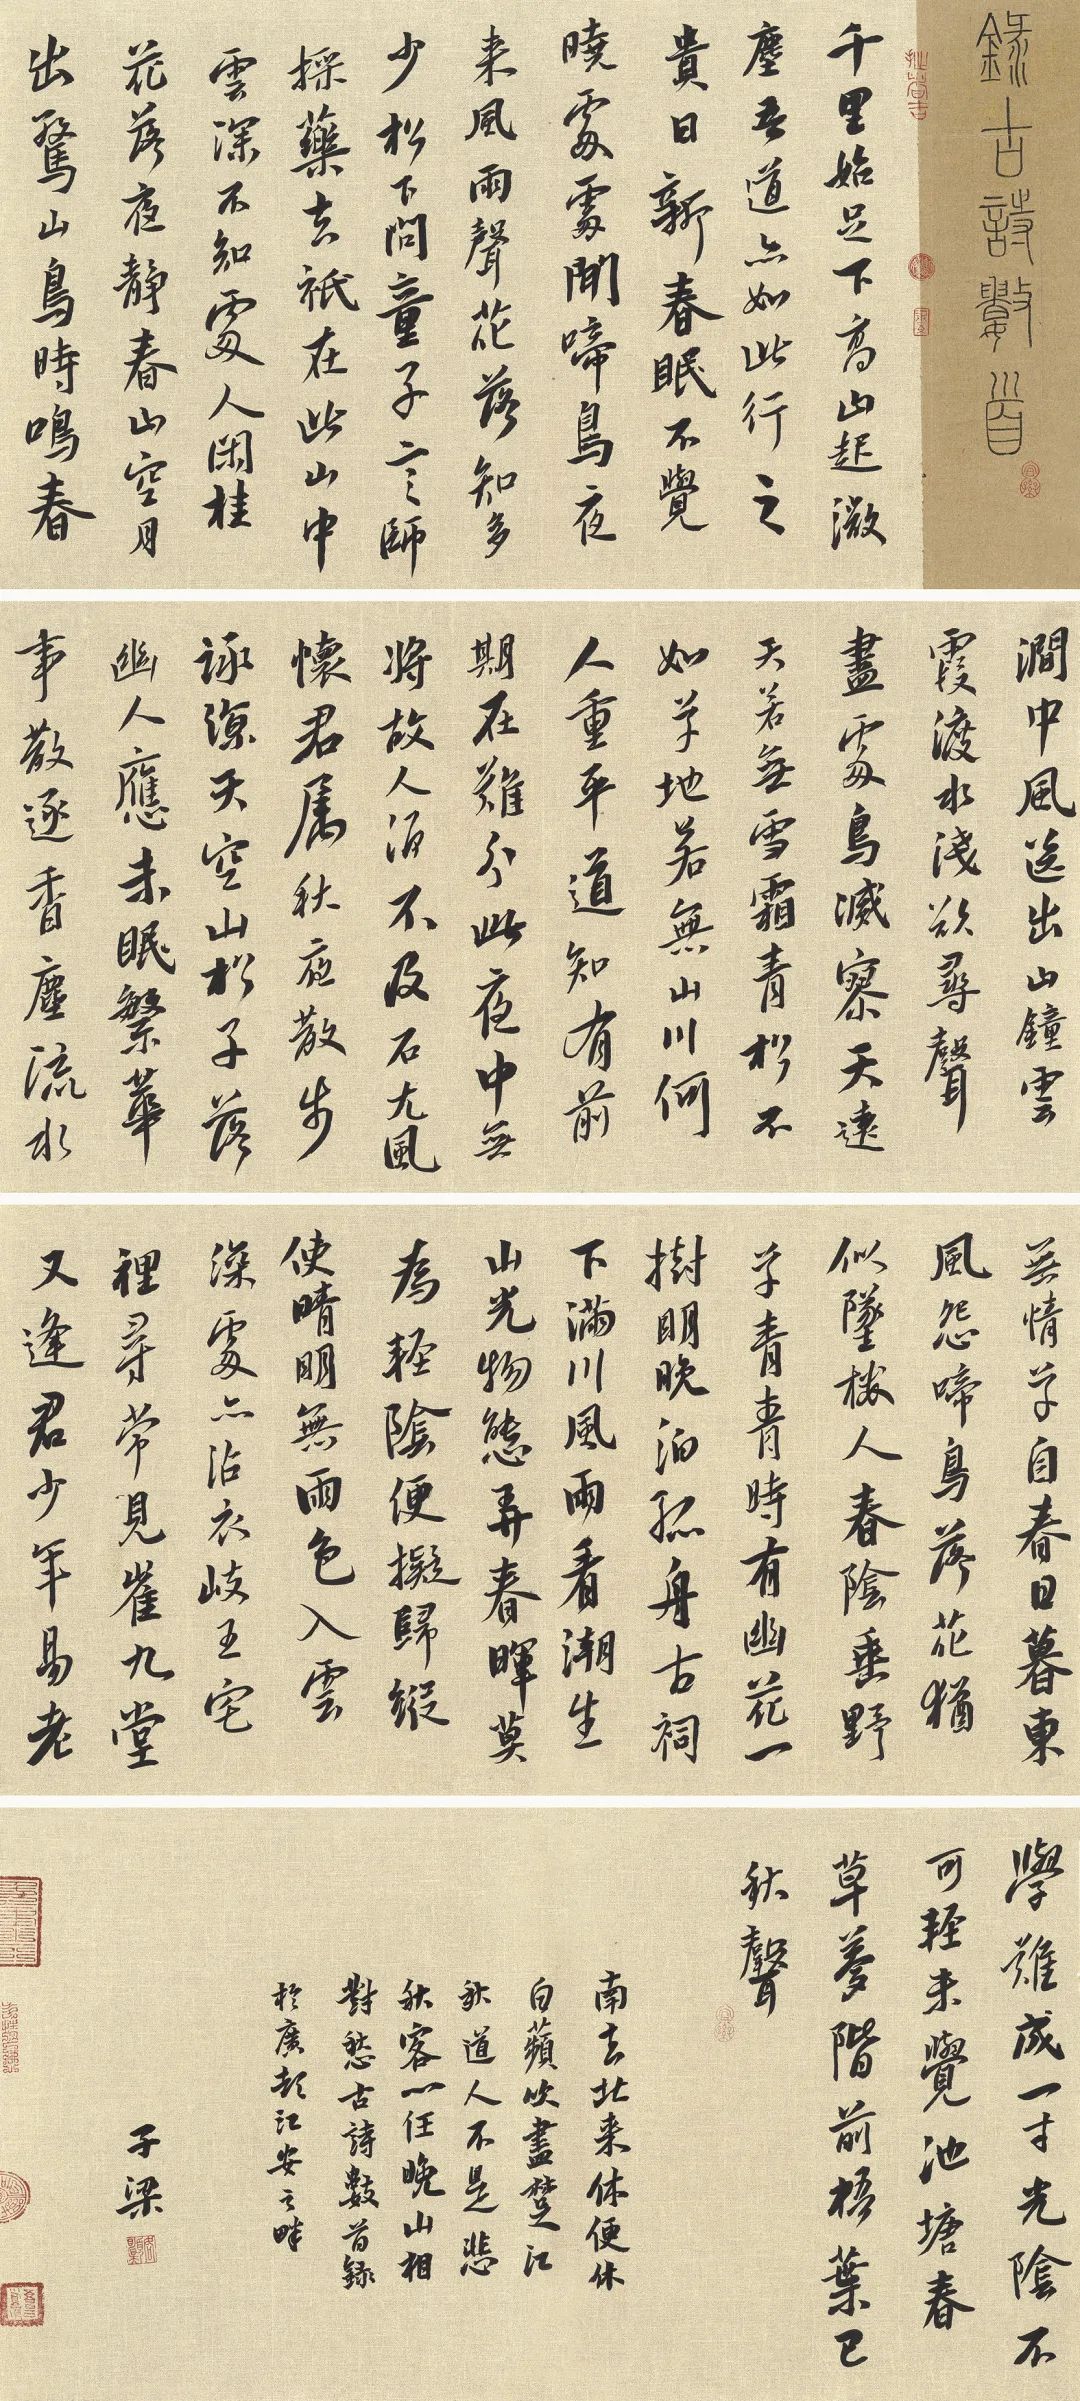 錄古詩數首
千里始足下高山起微
塵吾道亦如此行之
貴日新春眠不覺
曉處處聞啼鳥夜
来風雨聲花落知多
少松下問童子言師
採藥去祇在此山中
雲深不知處人閑桂
花落夜静春山空月
出驚山鳥時鳴春
澗中風送出山鐘雲
霞渡水淺欲尋聲
盡處鳥滅寥天遠
天若無雪霜青松不
如草地若無山川何
人重平道知有前
期在難分此夜中無
將故人酒不及石尤風
懷君屬秋夜散步
詠涼天空山松子落
幽人應未眠繁華
事散逐香塵流水
無情草自春日暮東
風怨啼鳥落花猶
似墜樓人春陰垂野
草青青時有幽花一
樹明晚泊孤舟古祠
下滿川風雨看潮生
山光物態弄春暉莫
為輕陰便擬歸縱
使晴明無雨色入雲
深處亦沾衣岐王宅
裡尋常見崔九堂
又逢君少年易老
學難成一寸光陰不
可輕未覺池塘春
草夢階前梧葉已
秋聲
南去北来休便休
白蘋吹盡楚江
秋道人不是悲
秋客一任晚山相
對愁古詩數首錄
於廣彭江安之畔
子梁